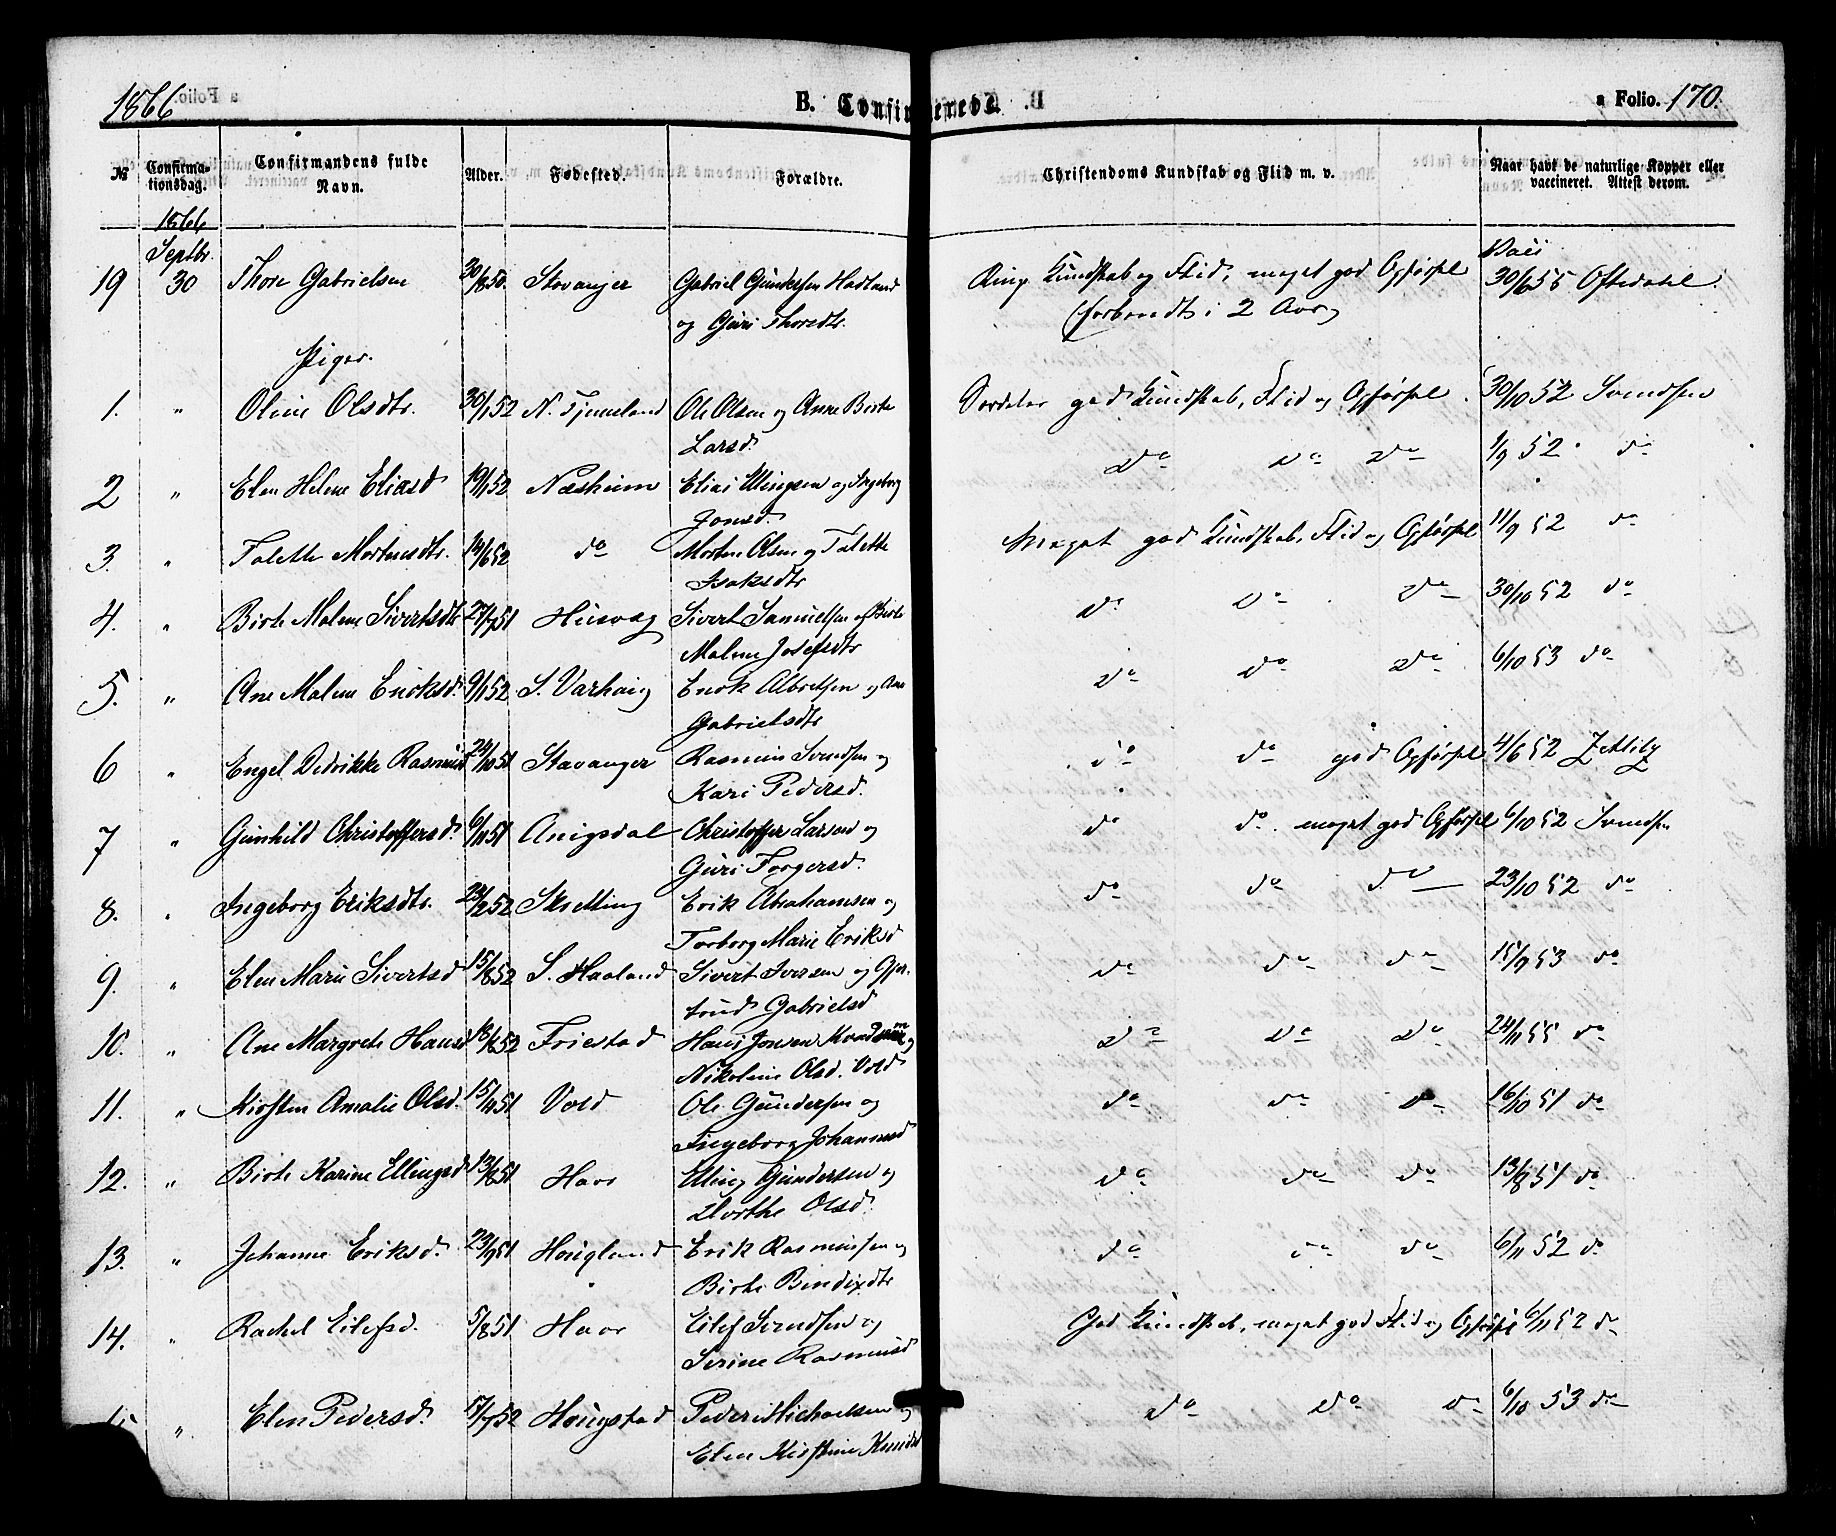 1866
B. Confirmerede.
a Folio. 170.
№ Confirmationsdag. Confirmandens fulde Navn. Alder. Fødested. Forældre. Christendoms Kundskab og Flid m. v. Naar havt de naturlige Kopper eller vaccineret. Attest derom.
1866
Septbr.
19 30 Thore Gabrielsen 30/8 50. Stavanger Gabriel Gundersen Hadland Ring. Kundskab og Flid, meget god Opførsel 30/6 55 Oftedahl
og Guri Thoredtr. (forberedt i 2 Aar)
Piger.
1. " Oline Olsdtr. 30/1 52 N. Tjemsland Ole Olsen og Anne Birte Særdeles god Kundskab, Flid og Opførsel. 30/10 52 Svendsen
Larsd.
2 " Elen Helene Eliasd 19/1 52 Næsheim Elias Ellingsen og Ingeborg do do do 1/9 52 do
Jonsd.
3. " Talette Mortensdtr. 14/6 52 do Morten Olsen og Talette Meget god Kundskab, Flid og Opførsel 11/9 52 do
Isaksdtr
4. " Birte Malene Sivertsdtr 27/7 51 Husvæg Sivert Samuelsen og Birte do do do 30/10 52 do
Malene Josefsdtr
5. " Ane Malene Enoksd. 9/1 52 S. Varhaug Enok Albretsen og Ane do do do 6/10 53 do
Gabrielsdtr
6 " Engel Didrikke Rasmusd 24/10 51 Stavanger Rasmus Svendsen og do do god Opførsel 4/6 52 Zetlitz
Kari Pedersd.
7 " Gunhild Christoffersd. 6/11 51 Anigsdal Christoffer Larsen og do do. meget god Opførsel 6/10 52 Svendsen
Guri Torgersd.
8. " Ingeborg Eriksdtr. 24/2 52 Skretting Erik Abrahamsen og do do do 23/10 52 do
Torborg Marie Eriksd
9. " Elen Marie Sivertsd 15/8 52 S. Haaland Sivert Iversen og Gjer- do do do 15/9 53 do
trud Gabrielsd
10. " Ane Margrete Hansd 18/6 52 Friestad Hans Jonsen og do do do 24/11 55 do
Nikoline Olsd. Vold
11. " Kirsten Amalie Olsd. 15/4 51 Vold Ole Gundersen og do do do 16/10 51 do
Ingeborg Johannesd
12. " Birte Karine Ellingsd 13/8 51 Haar Elling Gundersen og do do do 13/8 51 do
Dorthe Olsd.
13. " Johanne Eriksd. 23/9 51 Hougland Erik Rasmussen og do do do 6/11 52 do
Birte Bendixdtr
14. " Rachel Eilefsd. 5/8 51 Haar Eilef Svendsen og God Kundskab, meget god Flid og Opførsel 6/11 52 do
Serine Rasmusd
" Elen Pedersd. 17/7 52 Hougstad Peder Michaelsen og do do do 6/10 53 do
Elen Kirstine Knudsd